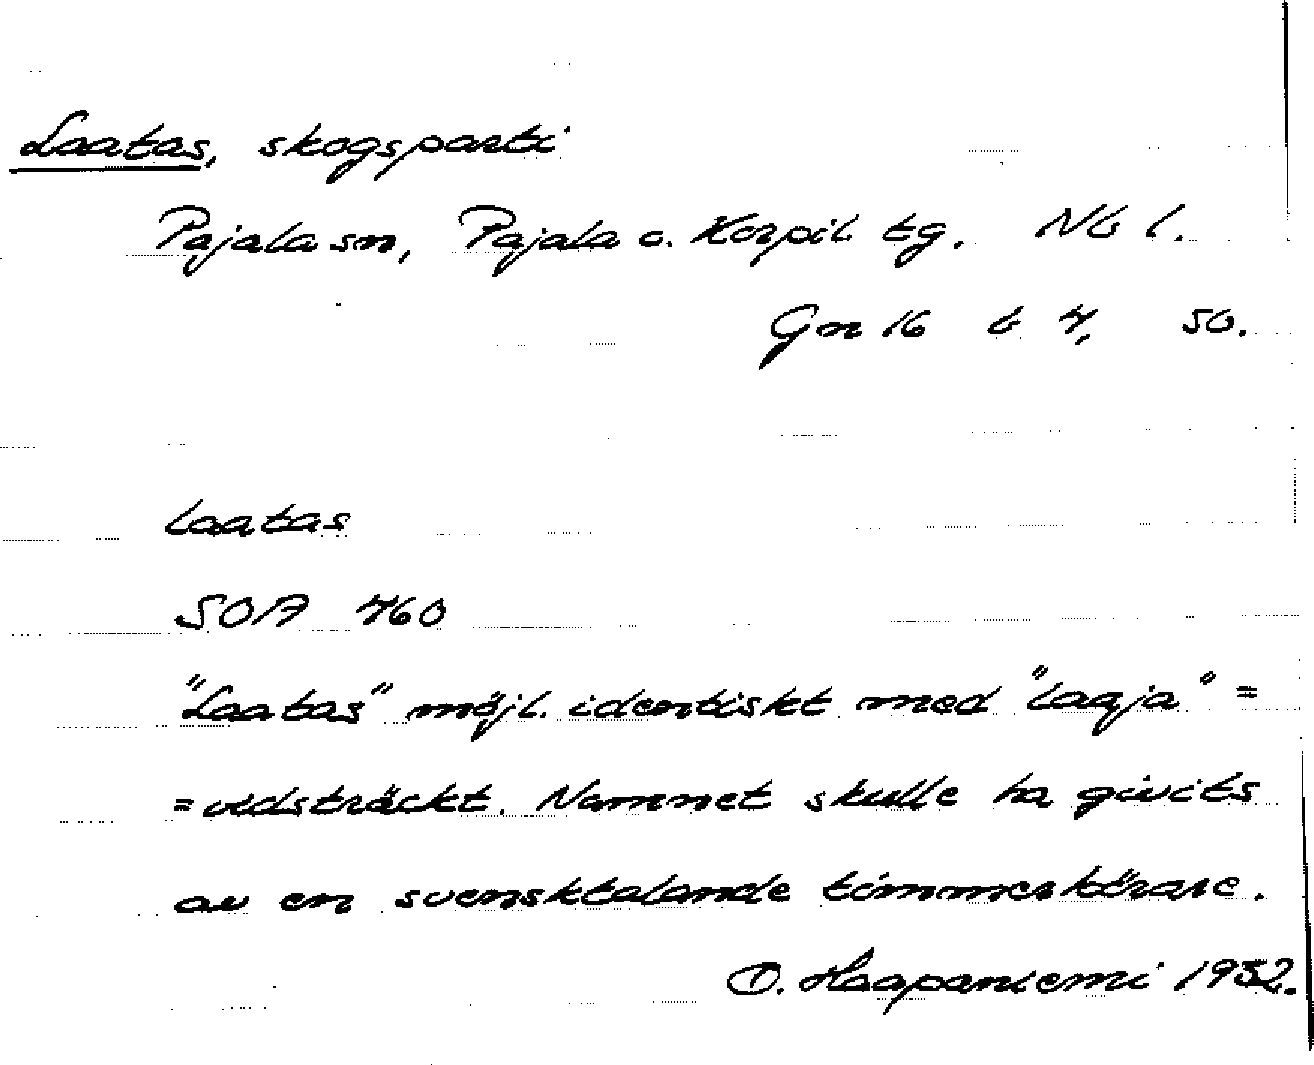 Laatas, skogsparti
Pajala sn, Pajala o. Korpil. tg. Nb l.
Gn 16 b 4, 50.
laatas
SOA 460
"Laatas" möjl. identiskt med "laaja" =
= vidsträckt. Namnet skulle ha givits
av en svensktalande timmerkörare.
O. Haapaniemi 1932.